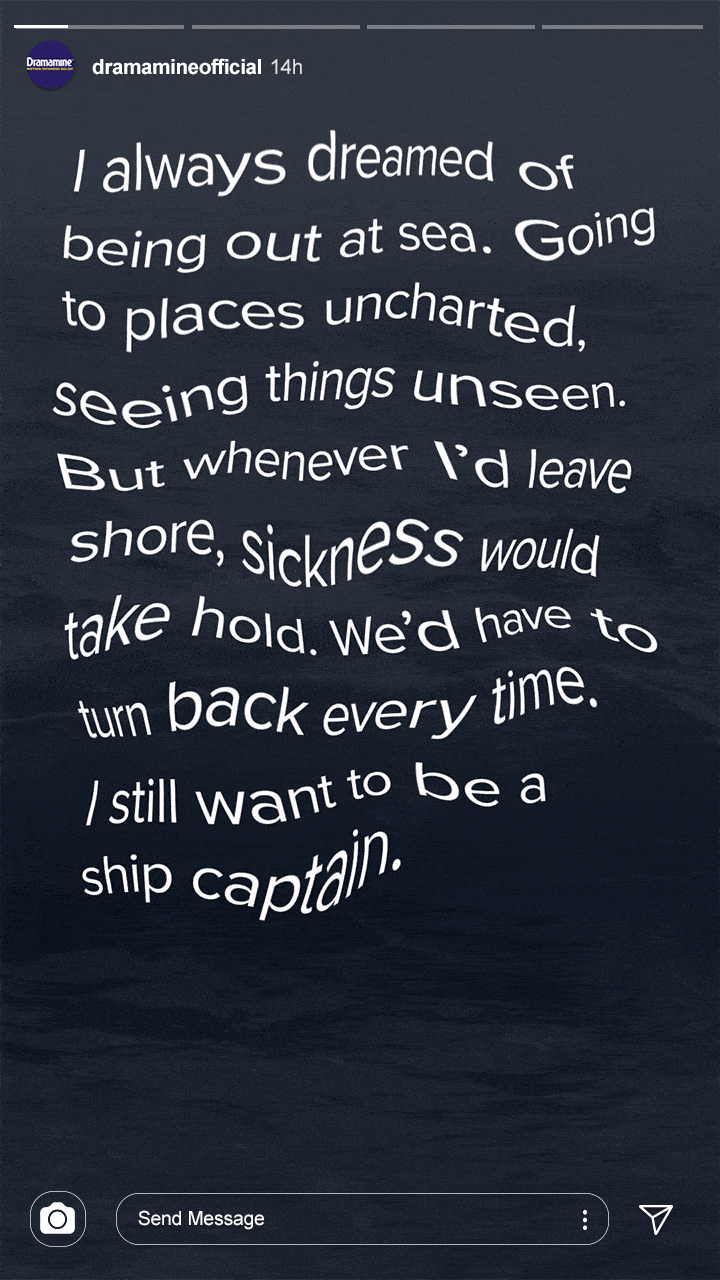 Dramamine
dramamineofficial 14h
I always dreamed of
being out at sea. Going
to places uncharted,
seeing things unseen.
But whenever I'd leave
shore, sickness would
take hold. We'd have to
turn back every time.
I still want to be a
ship captain.
Send Message